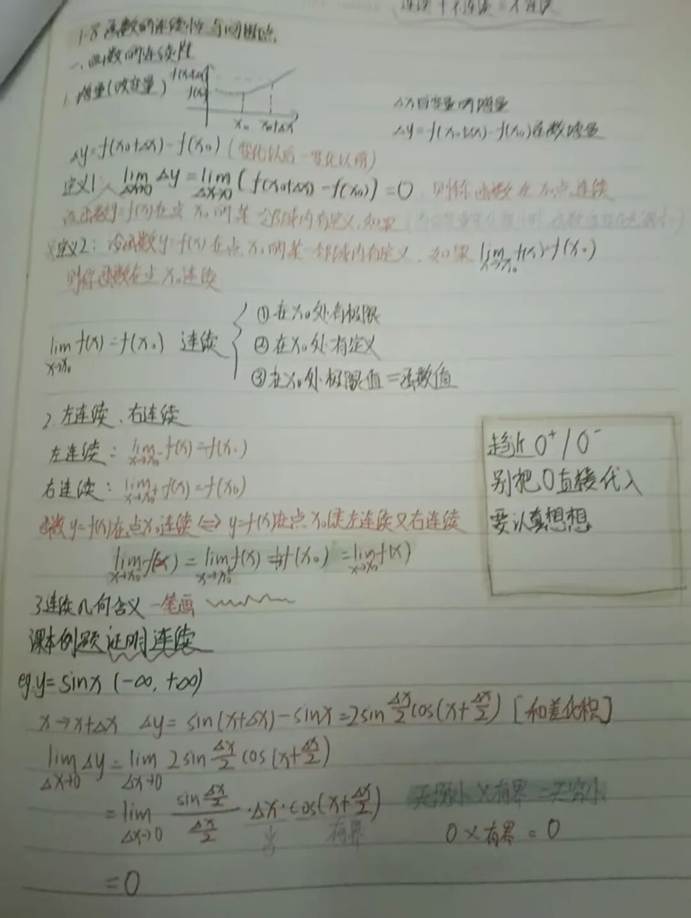 连续+不连续=不连续
1.8 函数的连续性与间断点
一、函数的连续性
1. 增量(改变量) f(x₀+Δx) f(x₀) x₀ x₀+Δx
Δx自变量的增量
Δy=f(x₀+Δx)-f(x₀)函数增量
Δy=f(x₀+Δx)-f(x₀) (变化以后-变化以前)
定义1: lim Δx→0 Δy = lim Δx→0 (f(x₀+Δx)-f(x₀))=0 则称函数在x₀点连续
设函数y=f(x)在点x₀的某一邻域内有定义,如果
定义2: 设函数y=f(x)在点x₀的某一邻域内有定义,如果 lim x→x₀ f(x)=f(x₀)
则称函数在点x₀连续
lim x→x₀ f(x)=f(x₀) 连续
①在x₀处有极限
②在x₀处有定义
③在x₀处极限值=函数值
2. 左连续、右连续
左连续: lim x→x₀⁻ f(x)=f(x₀)
右连续: lim x→x₀⁺ f(x)=f(x₀)
函数y=f(x)在点x₀连续⟺y=f(x)在点x₀既左连续又右连续
lim x→x₀⁻ f(x) = lim x→x₀⁺ f(x) = f(x₀) = lim x→x₀ f(x)
趋近0⁺/0⁻
别把0直接代入
要认真想想
3.连续几何含义 一笔画
课本例题证明连续
eg.y=sinx (-∞,+∞)
x→x+Δx Δy=sin(x+Δx)-sinx=2sin Δx/2 cos(x+Δx/2) [和差化积]
lim Δx→0 Δy= lim Δx→0 2sin Δx/2 cos(x+Δx/2)
= lim Δx→0 (sin Δx/2)/(Δx/2)·Δx·cos(x+Δx/2) 无穷小×有界=无穷小
有界 0×有界=0
=0